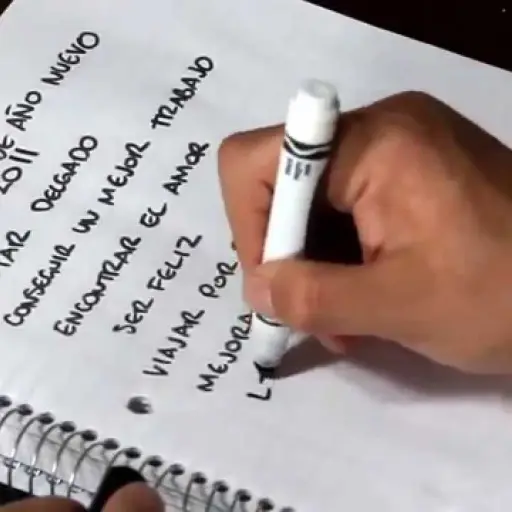 DE AÑO NUEVO
2011
DELGADO
CONSEGUIR UN MEJOR TRABAJO
ENCONTRAR EL AMOR
SER FELIZ
VIAJAR POR
MEJORA
L